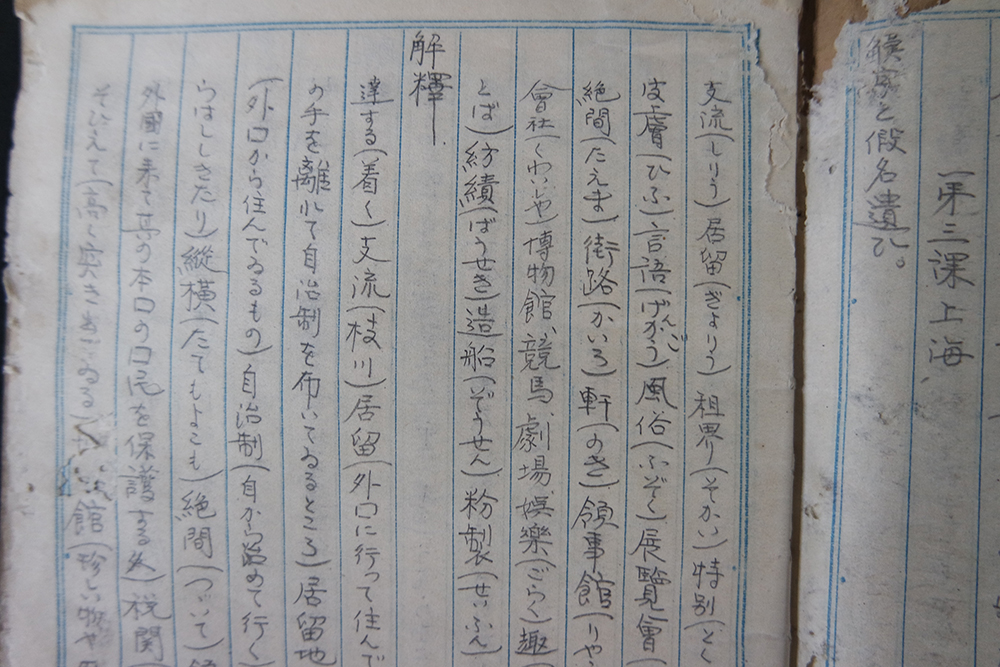 第三課 上海
漢字と假名遣ひ。
支流(しりう)居留(きよりう)租界(そかい)特別(とく
皮膚(ひふ)言語(げんご)風俗(ふぞく)展覽會(
絶間(たえま)街路(かいろ)軒(のき)領事館(りや
會社(くわいしや)博物館、競馬、劇場、娯樂(ごらく)趣(
とば)紡績(ばうせき)造船(ぞうせん)粉製(せいふん
解釋
達する(着く)支流(枝川)居留(外口に行って住んで
の手を離れて自治制を布いてゐるところ)居留地
(外口から住んでゐるもの)自治制(自から治めて行く
らはししきたり)縱横(たてもよこも)絶間(つゞいて)
外國に來て其の本口の口民を保護する 税關(
そびえて(高く突き出てゐる) 館(珍しい物や